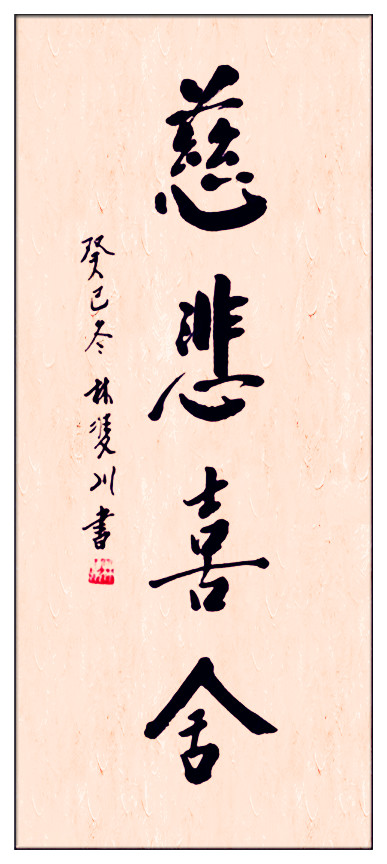 慈悲喜舍
癸巳冬 林川書